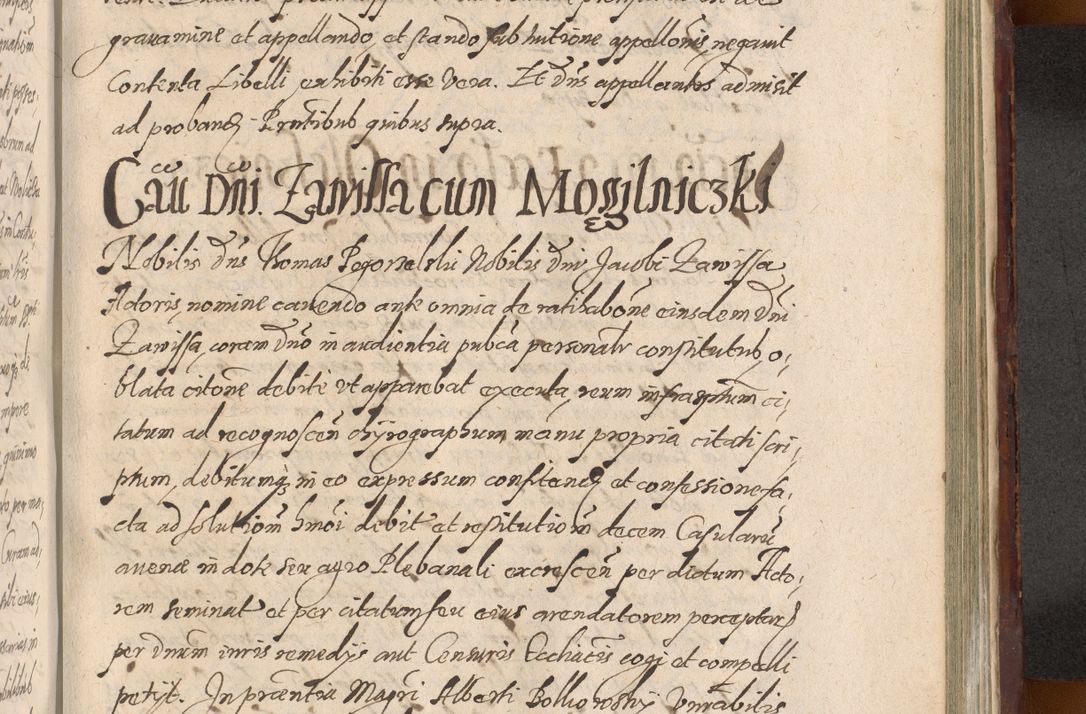 gravamine et appellando, et stando sub hutione appellonis, negavit
Contenta Libelli exhibiti esse Vera. Et Dns appellantes admisit
ad proband Prntibus quibus supra.
Cau Dni. Zawissa cum Mogilniczki
Nobilis Dns Thomas Nobilis Dni Jacobi Zawissa
Actoris, nomine cavendo ante omnia de ratihabone eiusdem Dni
Zawissa, coram Dno in audientia pubca personalr constitutus, o,
blata citone debite ut apparebat executa, reum infrascriptum ci,
tatum ad recognoscen chyrographum manu propria citati scri,
ptum, debitumq in eo expressum constand et confessione fa,
cta ad solutionm hmoi debit et restitutionm decem Casularu
avenæ in dote seu agro Plebanali excrescen per dictum Acto,
rem seminat et per citatum seu eius arendatorem perceptar
per Dnum iuris remedijs aut Censuris Eccliacis cogi et compelli
petijt. In præntia Magri Alberti Venrabilis